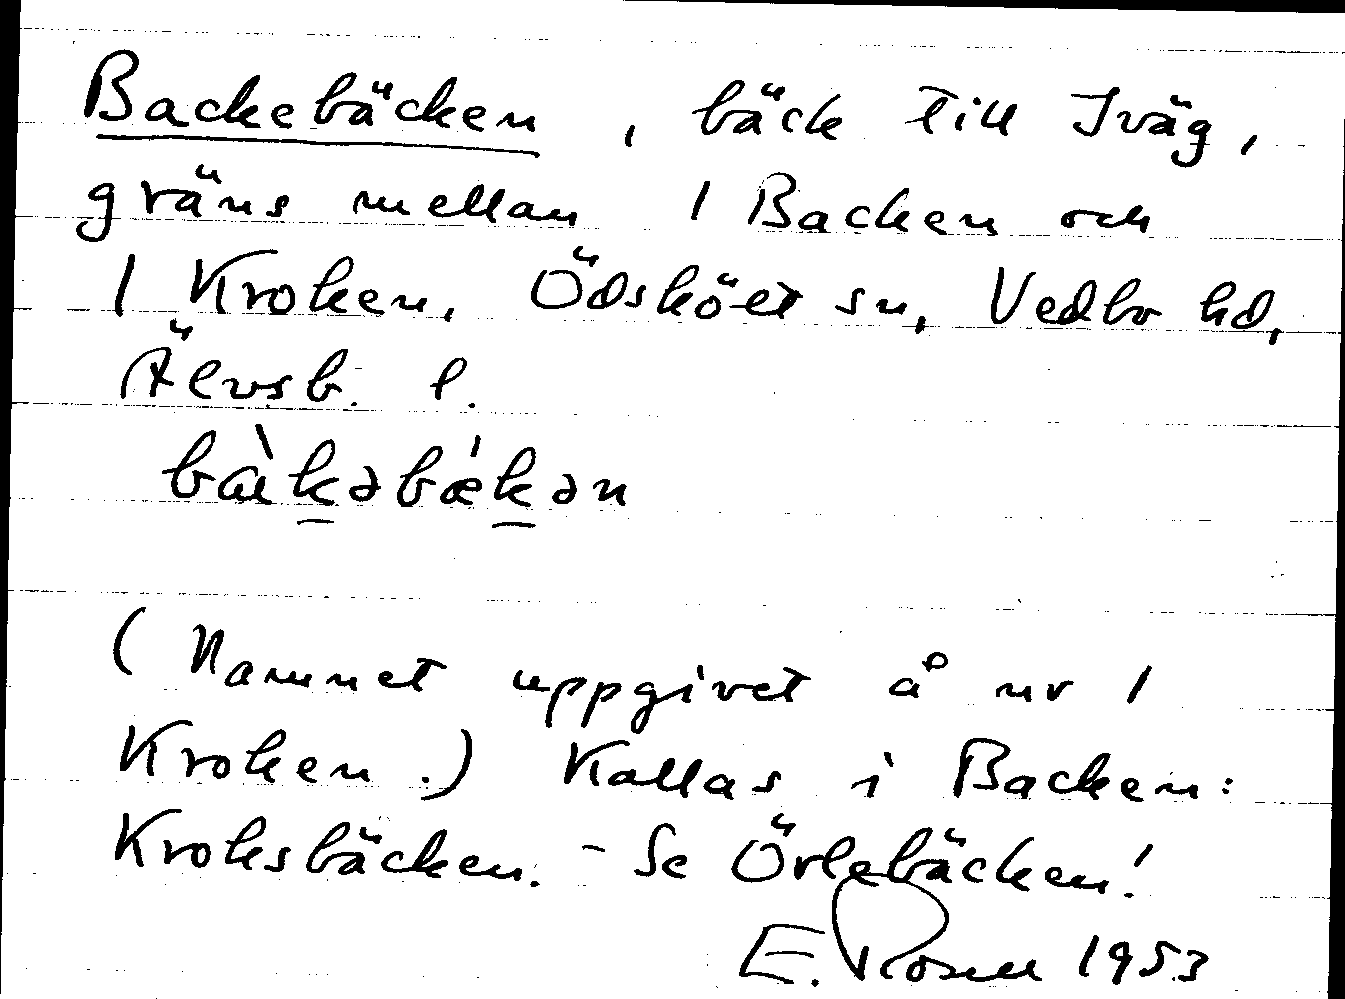 Backebäcken, bäck till Iväg,
gräns mellan 1 Backen och
1 Kroken, Ödsköet sn, Vedbo hd,
Älvsb. l.
bàkəbækən
(Namnet uppgivet å nr 1
Kroken.) Kallas i Backen:
Kroksbäcken. - Se Örlebäcken!
E. Rosell 1953